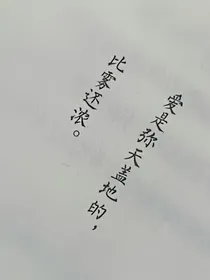 爱是弥天盖地的，
比雾还浓。